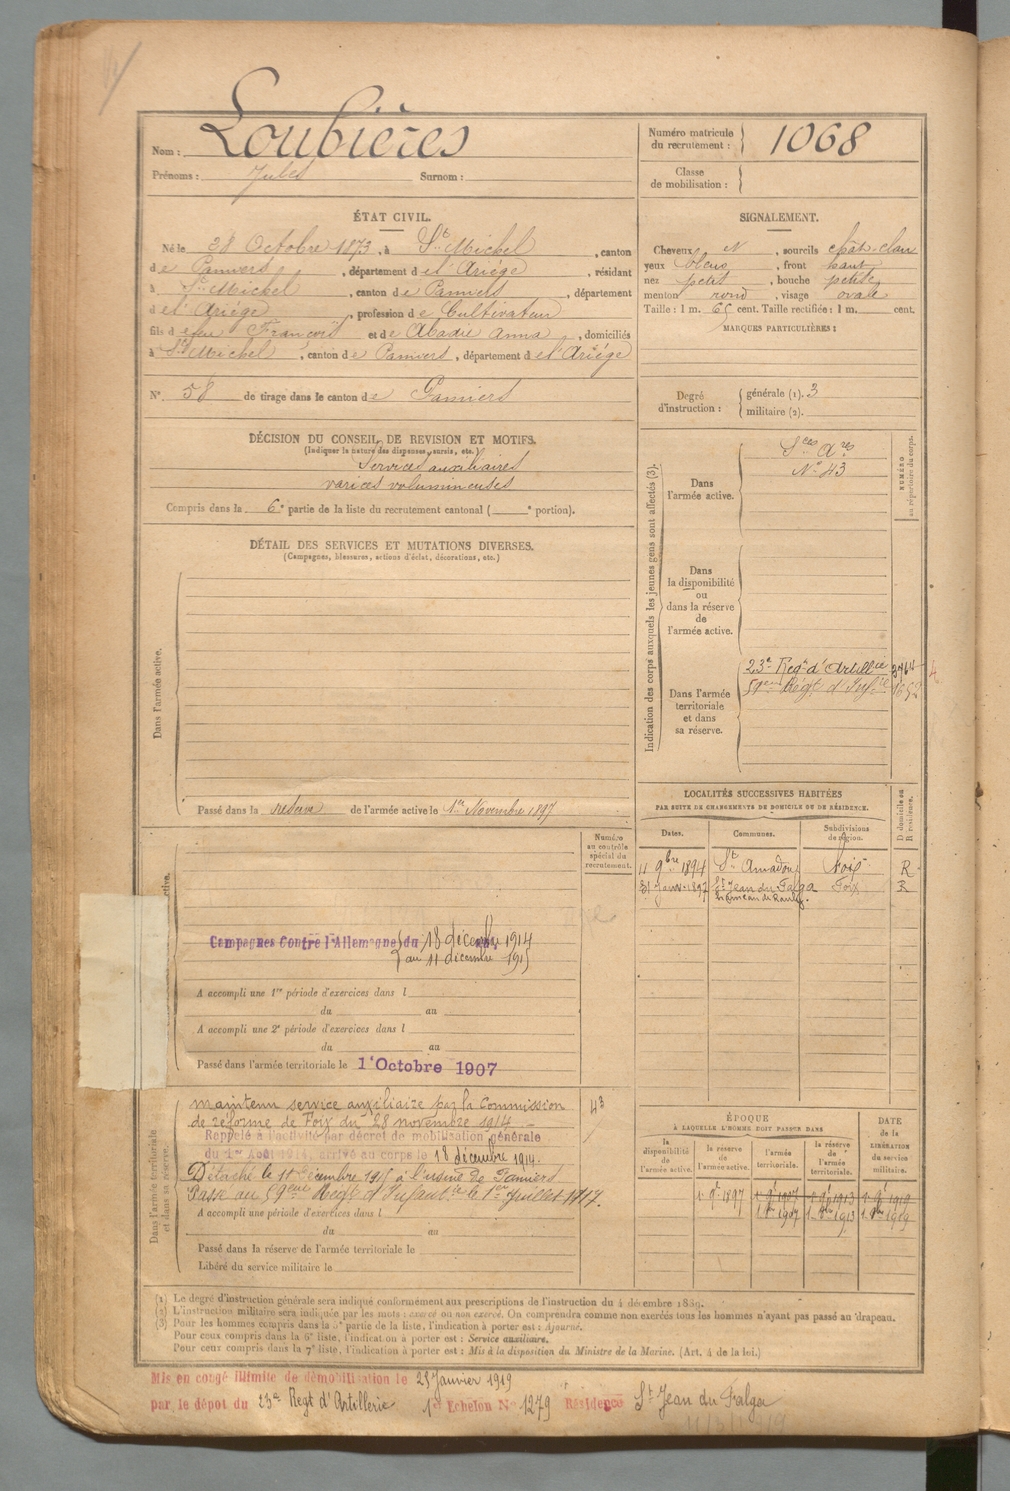 Nom : Loubières
Prénoms : Jules Surnom :
Numéro matricule du recrutement : 1068
Classe de mobilisation :
ÉTAT CIVIL.
Né le 28 Octobre 1873, à St Michel, canton
de Pamiers, département de l'Ariège, résidant
à St Michel, canton de Pamiers, département
de l'Ariège, profession de Cultivateur
fils de feu François et de Abadie Anna, domiciliés
à St Michel, canton de Pamiers, département de l'Ariège
N° 58 de tirage dans le canton de Pamiers
SIGNALEMENT.
Cheveux N, sourcils chât-clair
yeux bleus, front haut
nez petit, bouche petite
menton rond, visage ovale
Taille : 1 m. 65 cent. Taille rectifiée : 1 m. cent.
MARQUES PARTICULIÈRES :
Degré d'instruction : générale (1). 3
militaire (2).
DÉCISION DU CONSEIL DE REVISION ET MOTIFS.
(Indiquer la nature des dispenses, sursis, etc.)
Services auxiliaires
varices volumineuses
Compris dans la 6e partie de la liste du recrutement cantonal ( e portion).
DÉTAIL DES SERVICES ET MUTATIONS DIVERSES.
(Campagnes, blessures, actions d'éclat, décorations, etc.)
Dans l'armée active.
Passé dans la réserve de l'armée active le 1er Novembre 1897
Indication des corps auxquels les jeunes gens sont affectés (3).
NUMÉRO au répertoire du corps.
Dans l'armée active.
Sces Ares
N° 43
Dans la disponibilité ou dans la réserve de l'armée active.
Dans l'armée territoriale et dans sa réserve.
23e Regt d'Artillie 3464
59eme Régt d'Infie
LOCALITÉS SUCCESSIVES HABITÉES
PAR SUITE DE CHANGEMENTS DE DOMICILE OU DE RÉSIDENCE.
D domicile ou R résidence.
Dates. Communes. Subdivisions de région.
11 9bre 1894 St Amadou Foix R
31 Janv. 1897 St Jean du Falga Foix R
hameau de
Numéro au contrôle spécial du recrutement.
active.
Campagnes Contre l'Allemagne du 18 décembre 1914
au 11 décembre 1915
A accompli une 1re période d'exercices dans l
du au
A accompli une 2e période d'exercices dans l
du au
Passé dans l'armée territoriale le 1er Octobre 1907
Dans l'armée territoriale et dans sa réserve.
maintenu service auxiliaire par la Commission 43
de réforme de Foix du 28 novembre 1914.
Rappelé à l'activité par décret de mobilisation générale
du 1er Août 1914, arrivé au corps le 18 décembre 1914.
Détaché le 11 Décembre 1915 à l'usine de Pamiers
Passé au 59eme Régt d'Infantie le 1er Juillet 1917.
A accompli une période d'exercices dans l
du au
Passé dans la réserve de l'armée territoriale le
Libéré du service militaire le
ÉPOQUE
À LAQUELLE L'HOMME DOIT PASSER DANS
DATE de la LIBÉRATION du service militaire.
la disponibilité de l'armée active. la réserve de l'armée active. l'armée territoriale. la réserve de l'armée territoriale.
1 9e 1897 1 9e 1907 1 9e 1913 1 9e 1919
1 1907 1 1913 1 1919
(1) Le degré d'instruction générale sera indiqué conformément aux prescriptions de l'instruction du 4 décembre 1889.
(2) L'instruction militaire sera indiquée par les mots : exercé ou non exercé. On comprendra comme non exercés tous les hommes n'ayant pas passé au drapeau.
(3) Pour les hommes compris dans la 5e partie de la liste, l'indication à porter est : Ajourné.
Pour ceux compris dans la 6e liste, l'indication à porter est : Service auxiliaire.
Pour ceux compris dans la 7e liste, l'indication à porter est : Mis à la disposition du Ministre de la Marine. (Art. 4 de la loi.)
Mis en congé illimité de démobilisation le 25 Janvier 1919
par le dépot du 23e Regt d'Artillerie 1er Echelon N° 1279 Résidence St Jean du Falga